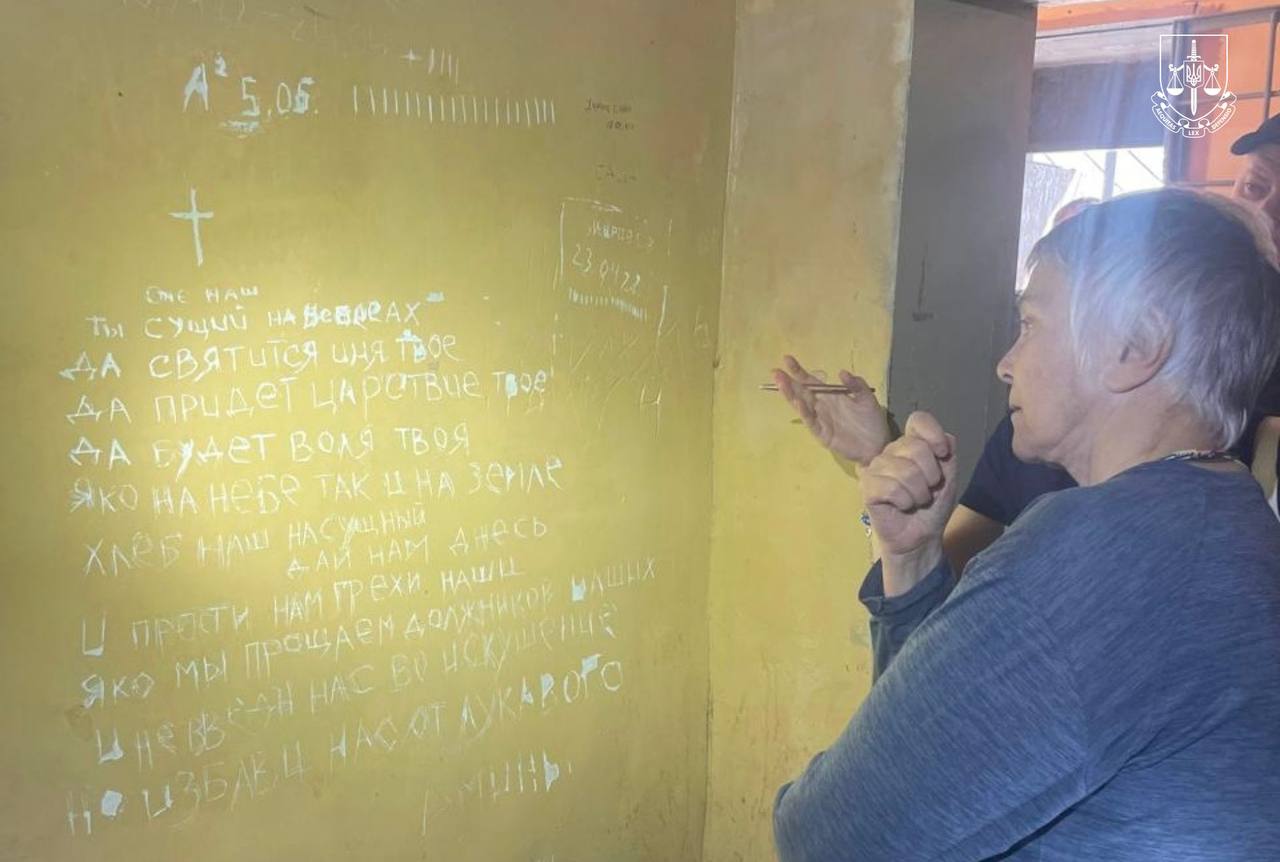 5.05.
23 04 22
Отче наш
Ты сущий на небесах
Да святится имя твое
Да придет царствие твое
Да будет воля твоя
Яко на небе так и на земле
Хлеб наш насущный
дай нам днесь
И прости нам грехи наши
Яко мы прощаем должников наших
И не введи нас во искушение
Но избави нас от лукавого
Аминь
AEQUITAS LEX DEFENSIO